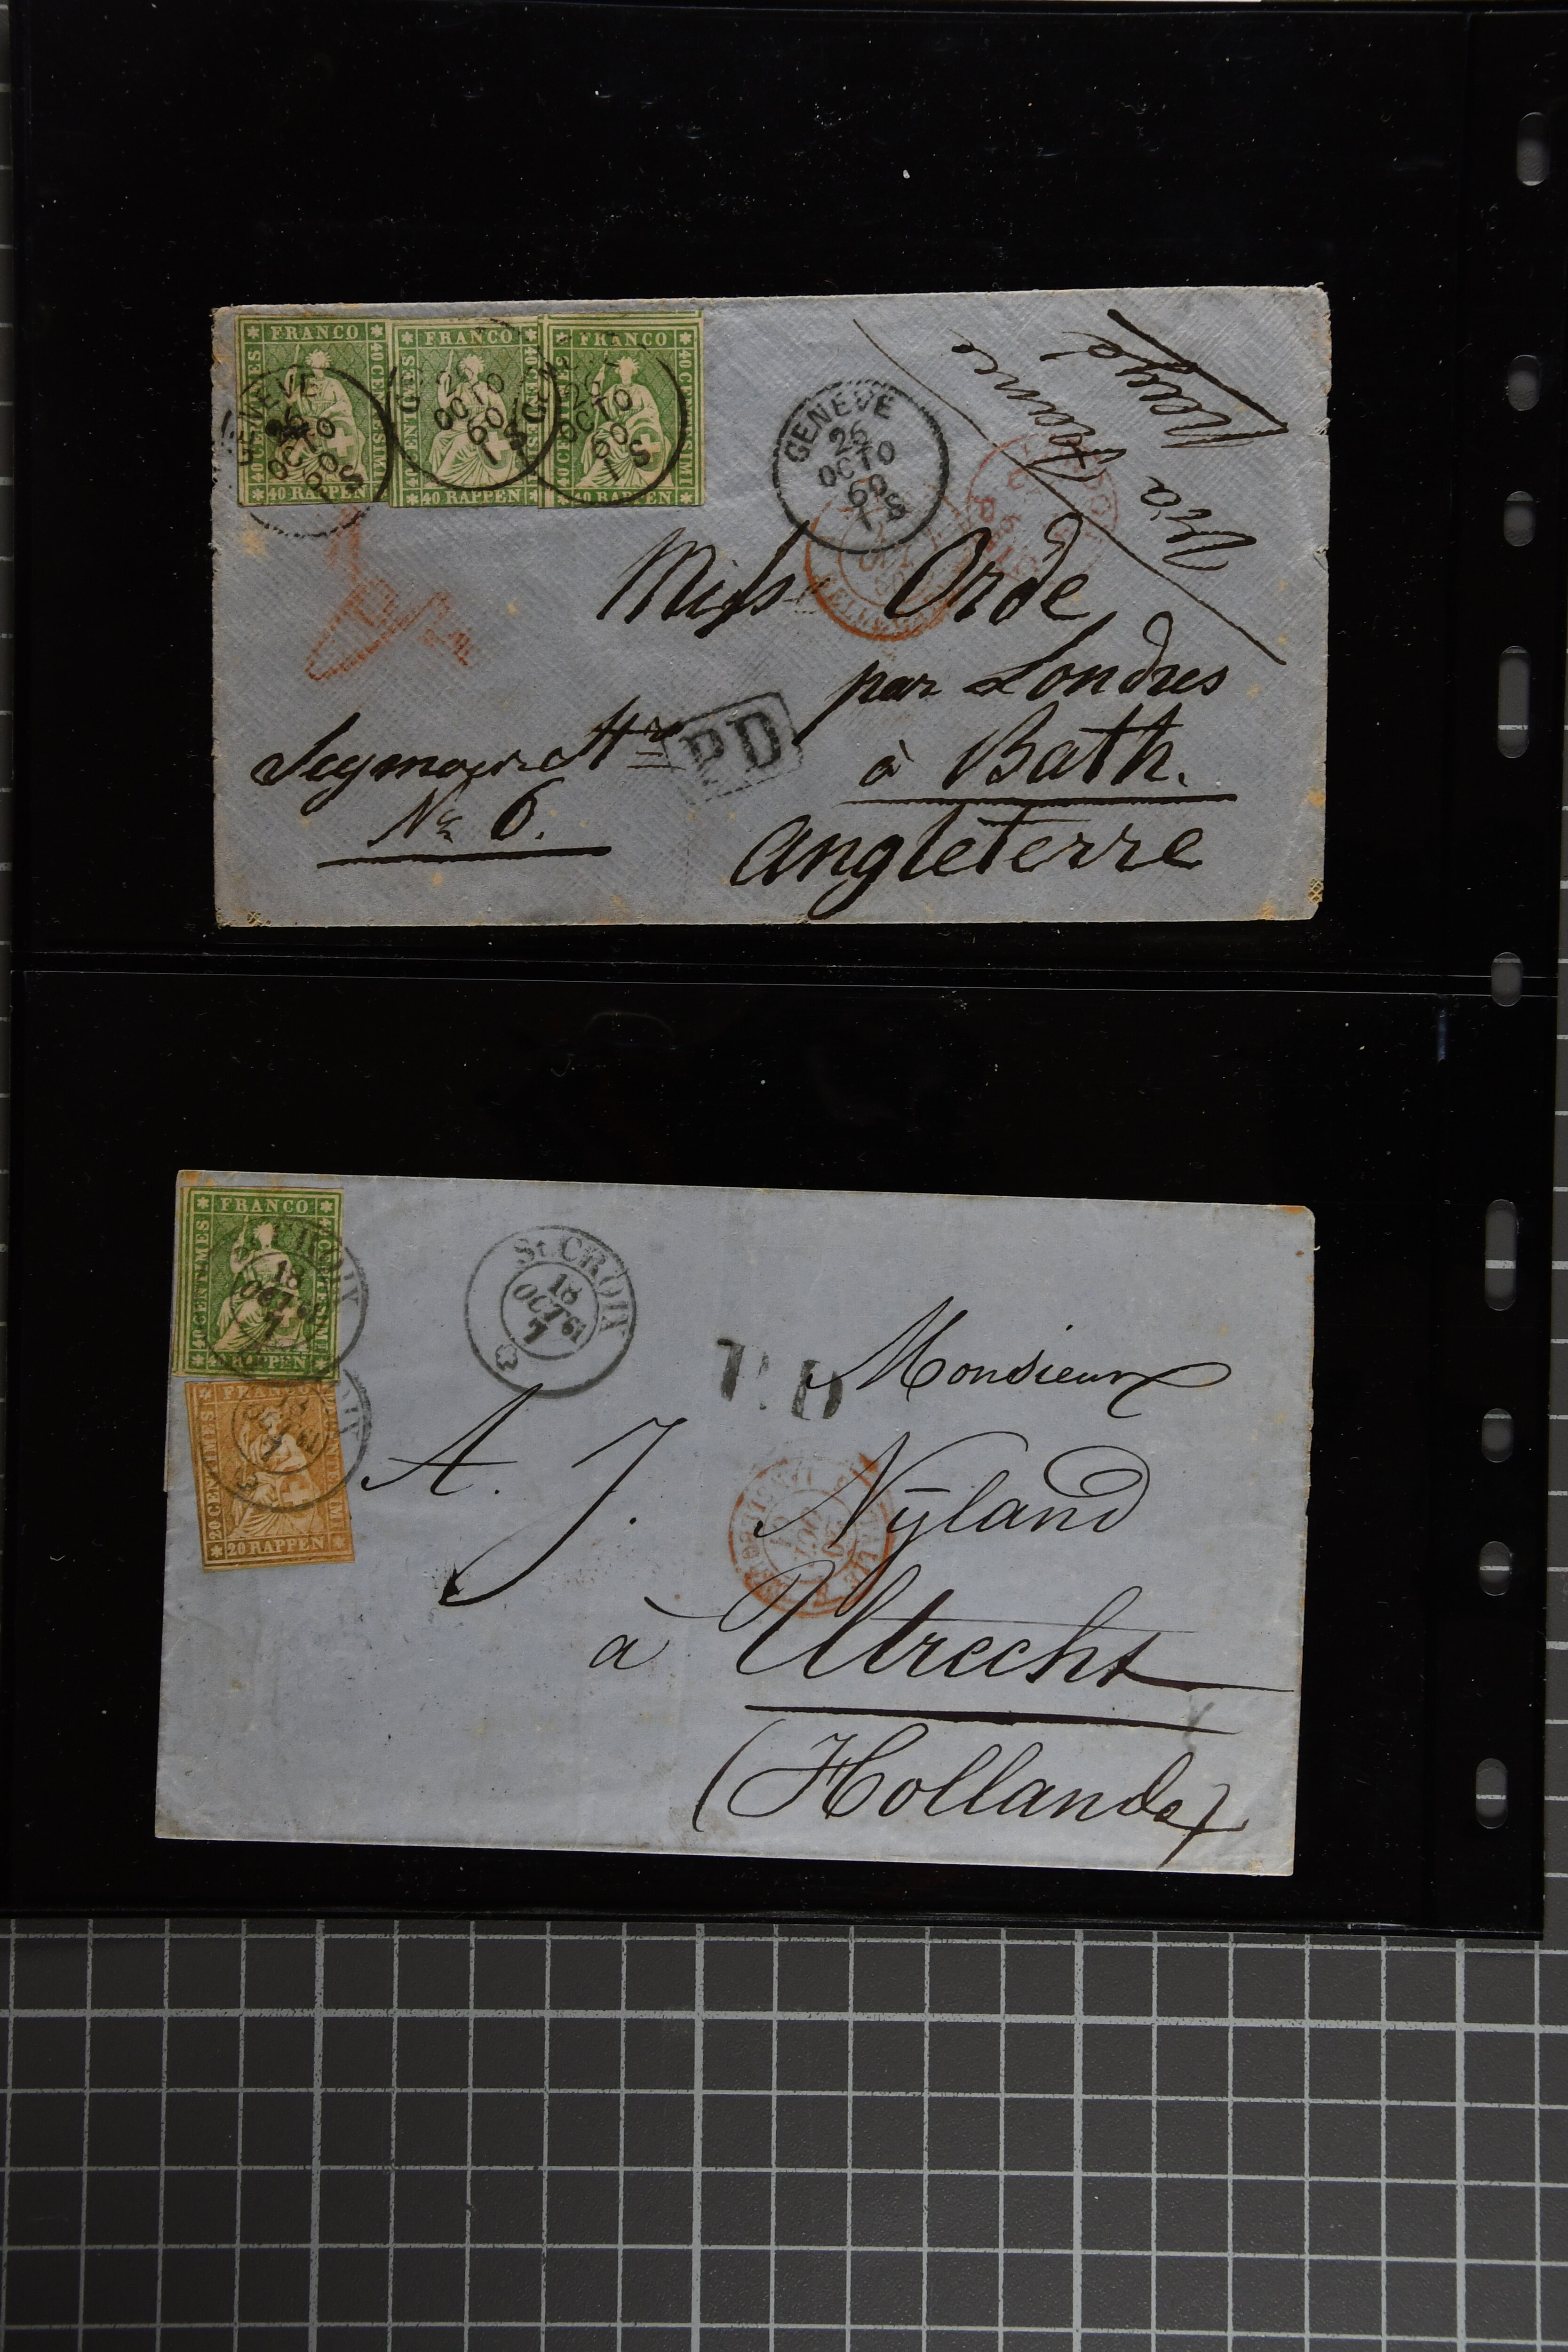 FRANCO
40 CENTIMES
40 CENTESIMI
40 RAPPEN
FRANCO
40 RAPPEN
FRANCO
40 CENTIMES
40 CENTESIMI
40 RAPPEN
GENEVE
26
OCTO
60
GENEVE
26
OCTO
60
1 S
Via France
Miss Orde
par Londres
à Bath.
Angleterre
Seymour Str
No 6.
PD
FRANCO
40 CENTIMES
FRANCO
20 CENTIMES
20 RAPPEN
18
OCT 61
7
St. CROIX
18
OCT 61
7
P.D
Monsieur
A. J. Nÿland
à Utrecht
(Hollande)